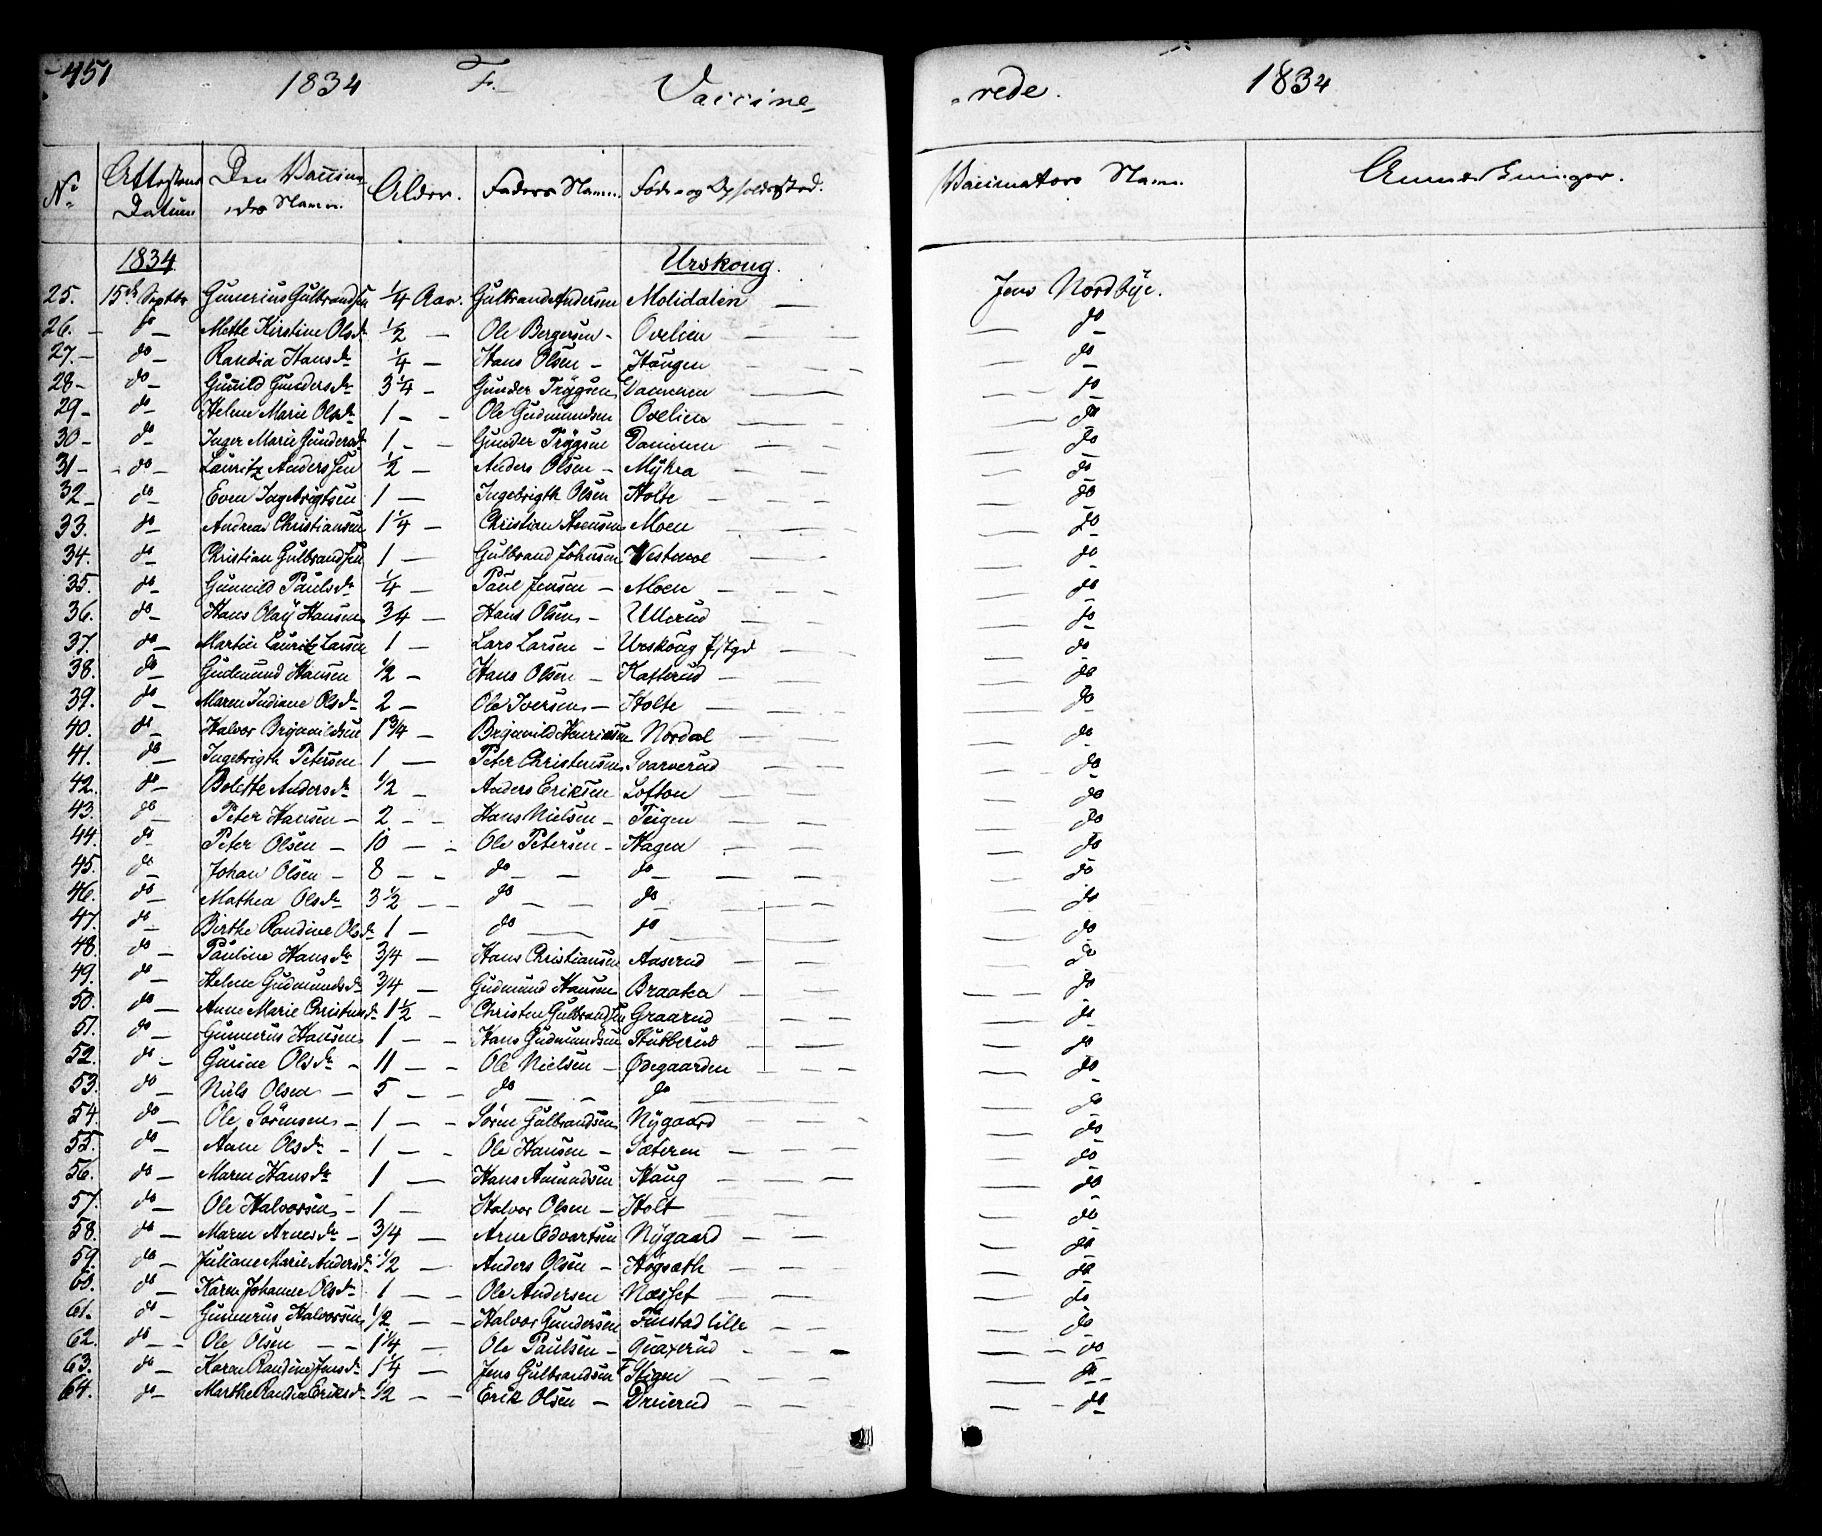 451 1834 F. Vaccine- -rede. 1834
No Attestens Datum Den Vaccineredes Navn. Alder. Faders Navn. Føde- og Opholdssted. Vaccinators Navn. Anmærkninger.
1834 Urskoug.
25. 15de Septbr Gunerius Gulbrandsen 1/4 Aar. Gulbrand Andersen Molidalen — Jens Nordbye.
26. — do — Mette Kirstine Olsdr 1/2 — Ole Bergersen — Ovelien — — do
27. — do — Randia Hansdr 1/4 — Hans Olsen — Haugen — — do
28 — do — Gunild Gundersdr 3 1/4 — Gunder Trygsen Dammen — — do
29 — do — Helene Marie Olsdr 1 — — Ole Gudmundsen Ovelien — — do
30 — do — Inger Marie Gundersdr 1 — — Gunder Trygsen Dammen — — do
31 — do — Lauritz Anderssen 1/2 — Anders Olsen — Myhra — — do
32 — do — Even Ingebrigtsen 1 — Ingebrigth Olsen Holte — — do
33. do — Andreas Christiansen 1 1/4 — Christian Moen — — do
34. do — Christian Gulbrandsen 1 — Gulbrand Johnsen — — do
35. do — Gunnild Paulsdr 1/4 — Paul Jensen — Moen — — do
36. do — Hans Olaÿ Hansen 3/4 — Hans Olsen — Ullerud — — do
37. do — Martin Lauritz Larsen 1 — Lars Larsen — Urskoug P/stgd — — do
38. do — Gudmund Hansen 1/2 — Hans Olsen — Katterud — — do
39. do — Maren Indiane Olsdr 2 — Ole Iversen — Holte — — do
40. do — Halvor Brynnildsen 1 3/4 — Brynnild Henriksen Nordal — — do
41. do — Ingebrigth Petersen 1 — Peter Christensen Svarverud — — do
42. do — Bolette Andersdr 1/2 — Anders Eriksen Lofton — — do
43. do — Peter Hansen — 2 — — Hans Nielsen — Teigen — — do
44. do — Peter Olsen — 10 — — Ole Petersen — Hagen — — do
45. do — Johan Olsen — 8 — — do — — do — — do
46. do — Mathea Olsdr 3 1/2 — — do — — do — — do
47. do — Birthe Randine Olsdr 1 — do — — do — — do
48. do — Pauline Hansdr 3/4 — Hans Christiansen Aaserud — — do
49. do — Helene Gudmundsdr 3/4 — Gudmund Hansen Braaten — — do
50. do — Anne Marie Christensdr 1 1/2 — Christen Gulbrandsen Graarud — — do
51. do — Gunnerus Hansen 1 — — Hans Gudmundsen Stubberud — — do
52. do — Gurine Olsdr — 11 — — Ole Nielsen — Ødegaarden — — do
53. do — Niels Olsen — 5 — — do — — do — — do
54. do — Ole Sörensen — 1 — — Sören Gulbrandsen Nygaard — — do
55. do — Anne Olsdr — 1 — — Ole Hansen — Sæteren — — do
56. do — Maren Hansdr 1 — Hans Amundsen Haug — — do
57. do — Ole Halvorsen — 1 — Halvor Olsen — Holt — — do
58. do — Maren Arnesdr — 3/4 — Arne Edvartsen Nygaard — — do
59. do — Juliane Marie Andersdr 1/2 — Anders Olsen — Høgsæth — — do
60. do — Karen Johanne Olsdr 1 — — Ole Andersen Næsset — — do
61. do — Gunnerus Halvorsen 1/2 — — Halvor Gundersen Finstad lille — — do
62. do — — Ole Olsen — — 1 1/4 — Ole Paulsen — — — do
63. do — Karen Randine Jensdr 1 1/4 — Jens Gulbrandsen Stigen — — do
64. do — Marthe Randia Eriksdr 1/2 — — Erik Olsen — Dreierud — — do